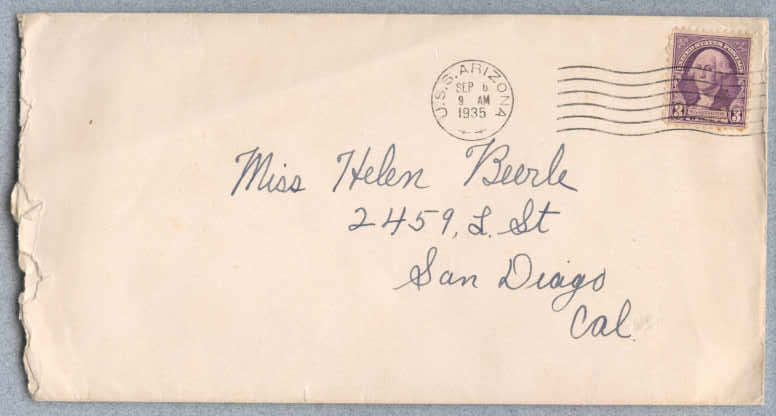 U.S.S. ARIZONA
SEP 6
9 AM
1935
3 3
Miss Helen Beerle
2459, L. St
San Diago
Cal.